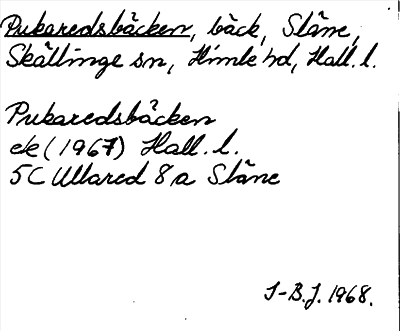 Pukaredsbäcken, bäck, Släne,
Skällinge sn, Himle hd, Hall. l.
Pukaredsbäcken
ek (1967) Hall. l.
5C Ullared 8 a Släne
I-B.J. 1968.